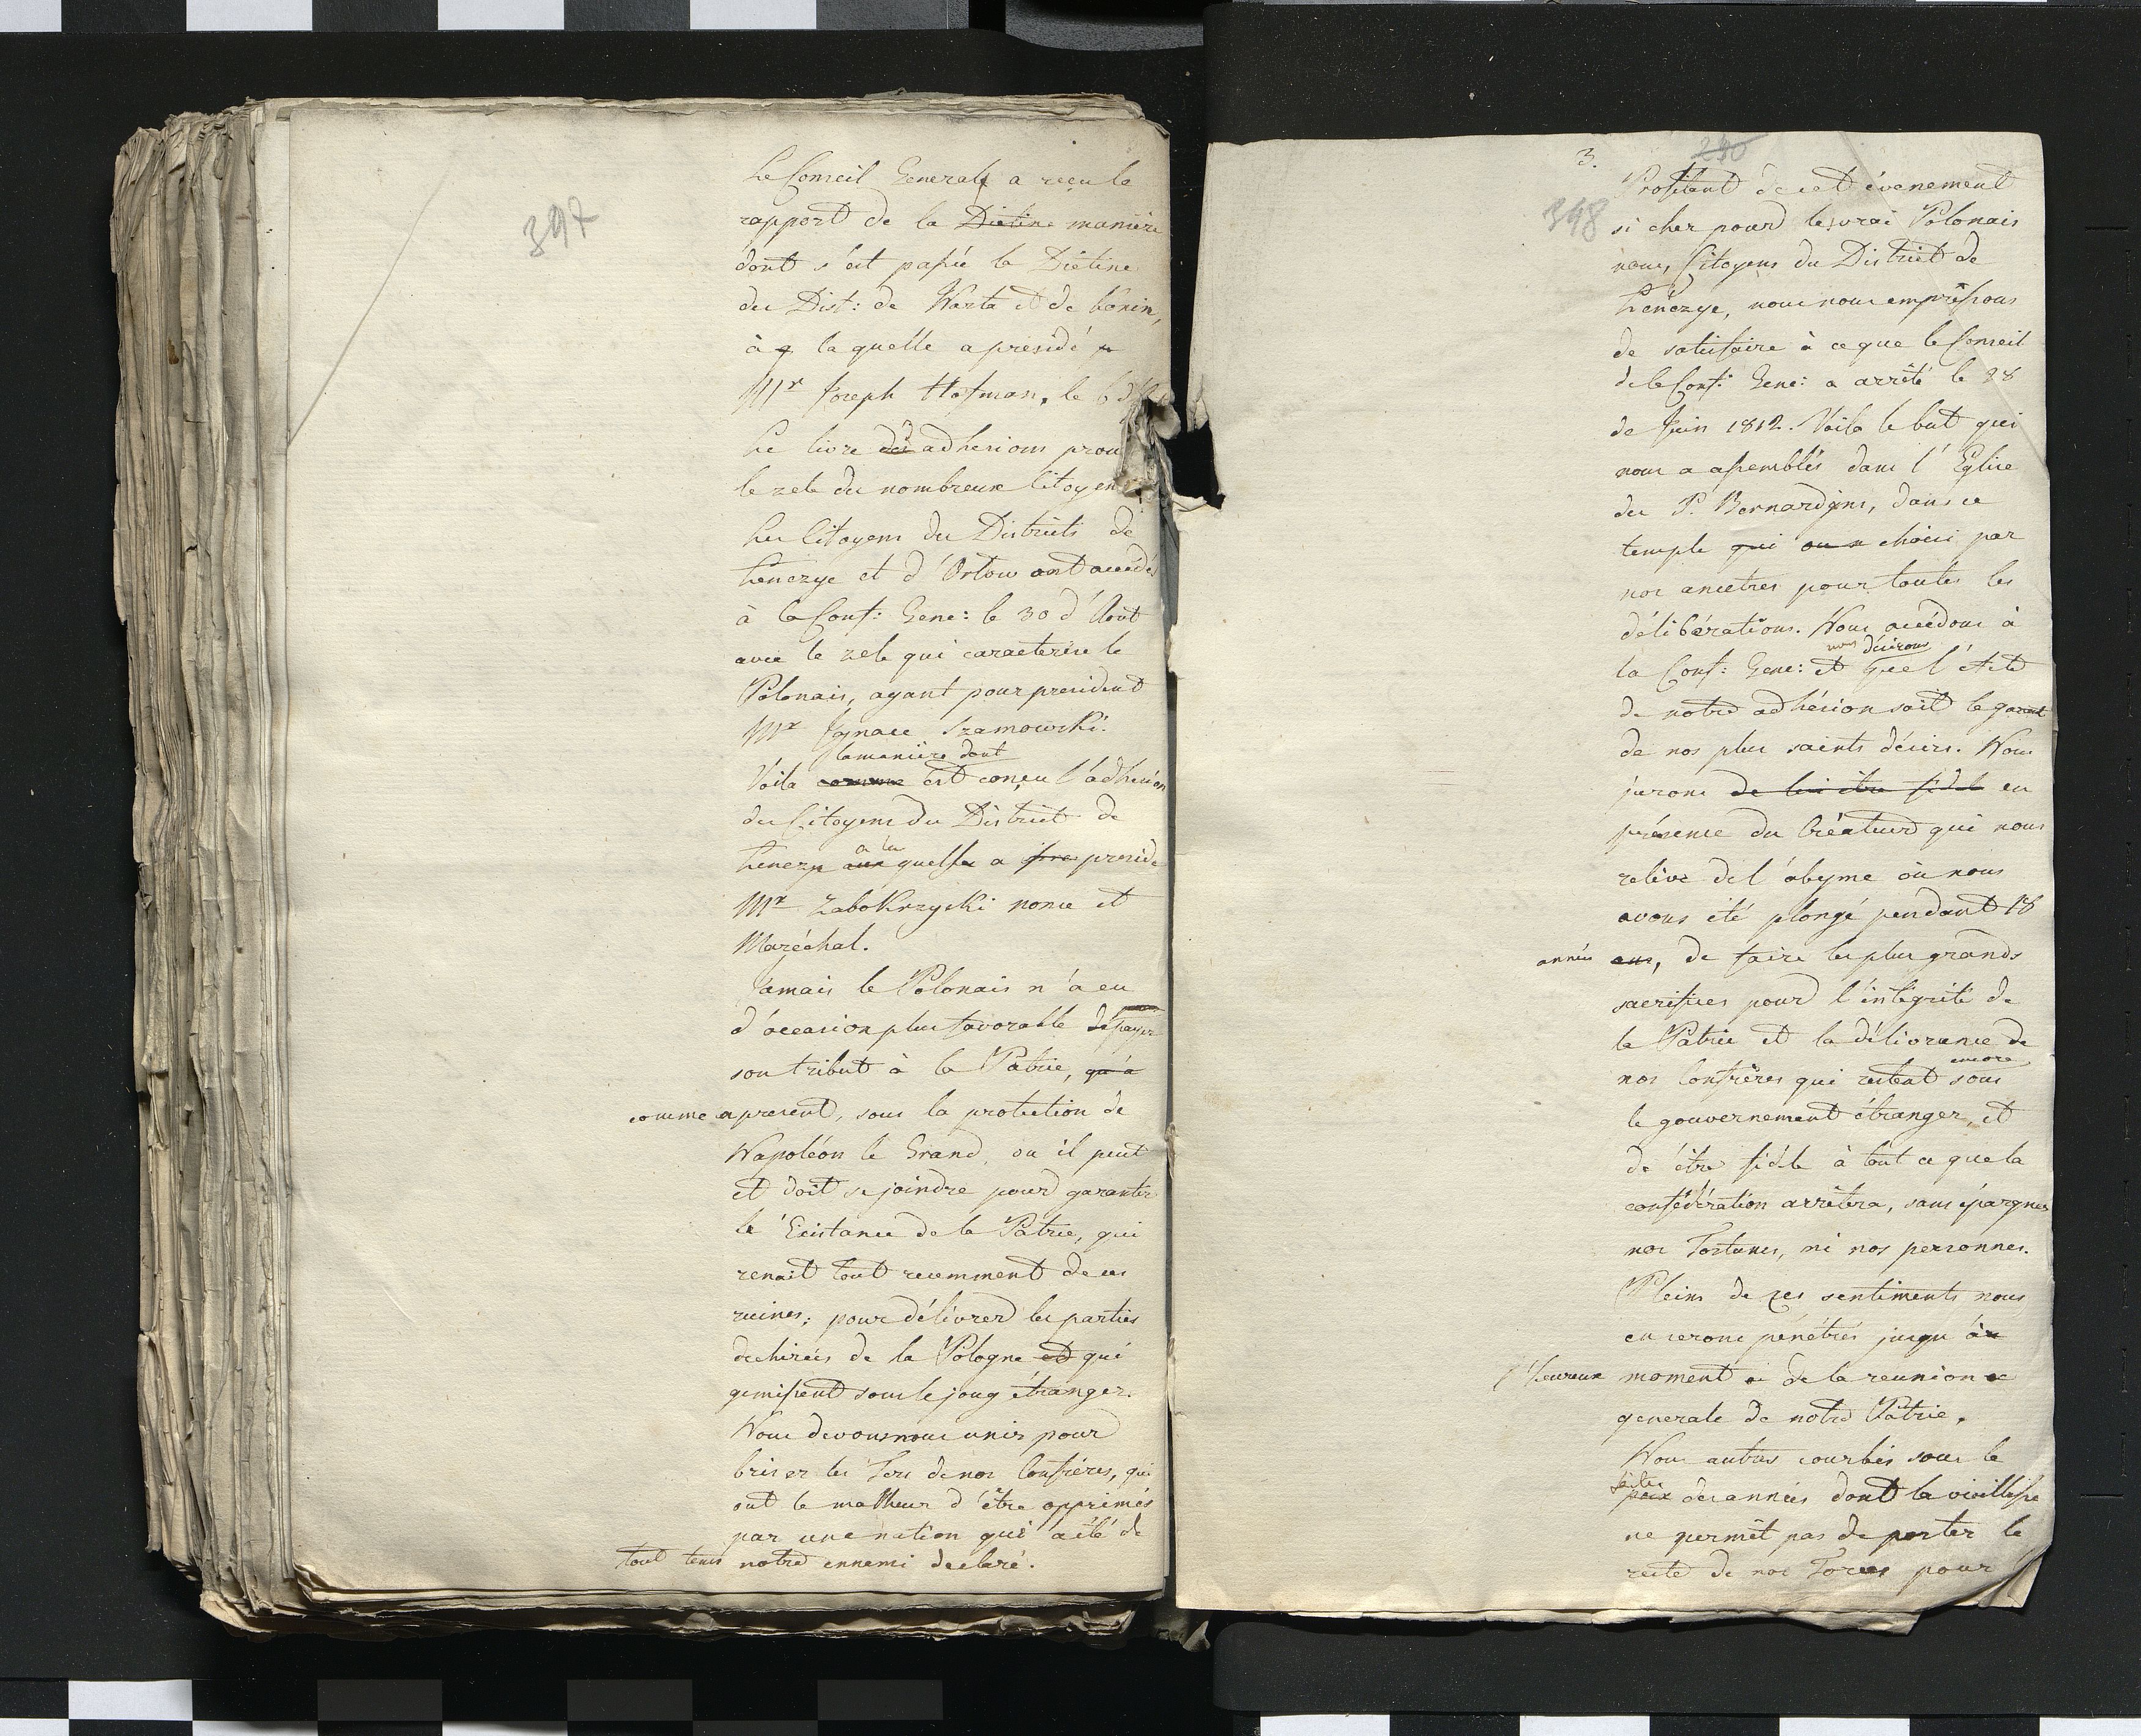 397
Le Conseil General a reçu le
rapport de la Dietine maniere
dont s'est passée la Diétine
des Dist: de Warta et de Konin,
à q laquelle a présidé
Mr Joseph Hofman, le 6
Le livre des adhesions prou
le zele du nombreux Citoyens.
Les Citoyens du Districts de
Lenczyc et d'Orlow ont accédés
à la Conf: Gene: le 30 d'Août
avec le zele qui caracterise le
Polonais, ayant pour president
Mr Ignace Szamowski.
la manière dont
Voila comme est conçu l'adhesion
des Citoyens du District de
à la
Lenczy aux quelle a pre preside
Mr Zabokrzycki nonce et
Maréchal.
Jamais le Polonais n'a eu
d'occasion plus favorable de payer
son tribut à la Patrie, qu'à
comme apresent, sous la protection de
Napoléon le Grand, ou il peut
et doit se joindre pour garantir
le Existance de la Patrie, qui
renait tout recemment de ces
ruines; pour délivrer les parties
dechirées de la Pologne et qui
gemissent sous le joug étranger.
Nous devons nous unir pour
briser les Fers de nos Confréres, qui
ont le malheur d'être opprimés
par une nation qui a été de
tout tems notre ennemi declaré.
3.
240
398
Profitant de cet évenement
si cher pour le vrai Polonais
nous, Citoyens du District de
Lenczyc, nous nous empressons
de satisfaire à ce que le Conseil
de la Conf: Gene: a arrêté le 28
de Juin 1812. Voila le but qui
nous a assemblés dans l'Eglise
des P. Bernardyns, dans ce
temple qui on a choisi par
nos ancetres pour toutes les
délibérations. Nous accédons à
nous désirons
la Conf: Gene: et que l'Acte
de notre adhésion soit le garant
de nos plus saints désirs. Nous
jurons de lui être fidel en
présence du Créateur qui nous
relève de l'abyme où nous
avons été plongé pendant 18
années ans, de faire les plus grands
sacrifices pour l'intégrité de
la Patrie et la délivrance de
encore
nos Confrères qui restent sous
le gouvernement étranger, et
de être fidele à tout ce que la
confédération arrêtera, sans épargner
nos Fortunes, ni nos personnes.
Pleins de ces sentiments nous
en serons pénétrés jusqu'au
l'heureux moment de la reunion
generale de notre Patrie.
Nous autres courbés sous le
faite
poix des années dont la vieillesse
ne permet pas de porter le
reste de nos Forces pour